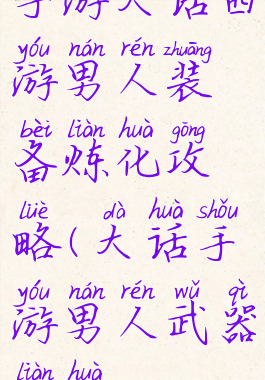 手游大话西
yóu nán rén zhuāng
游男人装
bèi liàn huà gōng
备炼化攻
lüè dà huà shǒu
略(大话手
yóu nán rén wǔ qì
游男人武器
liàn huà